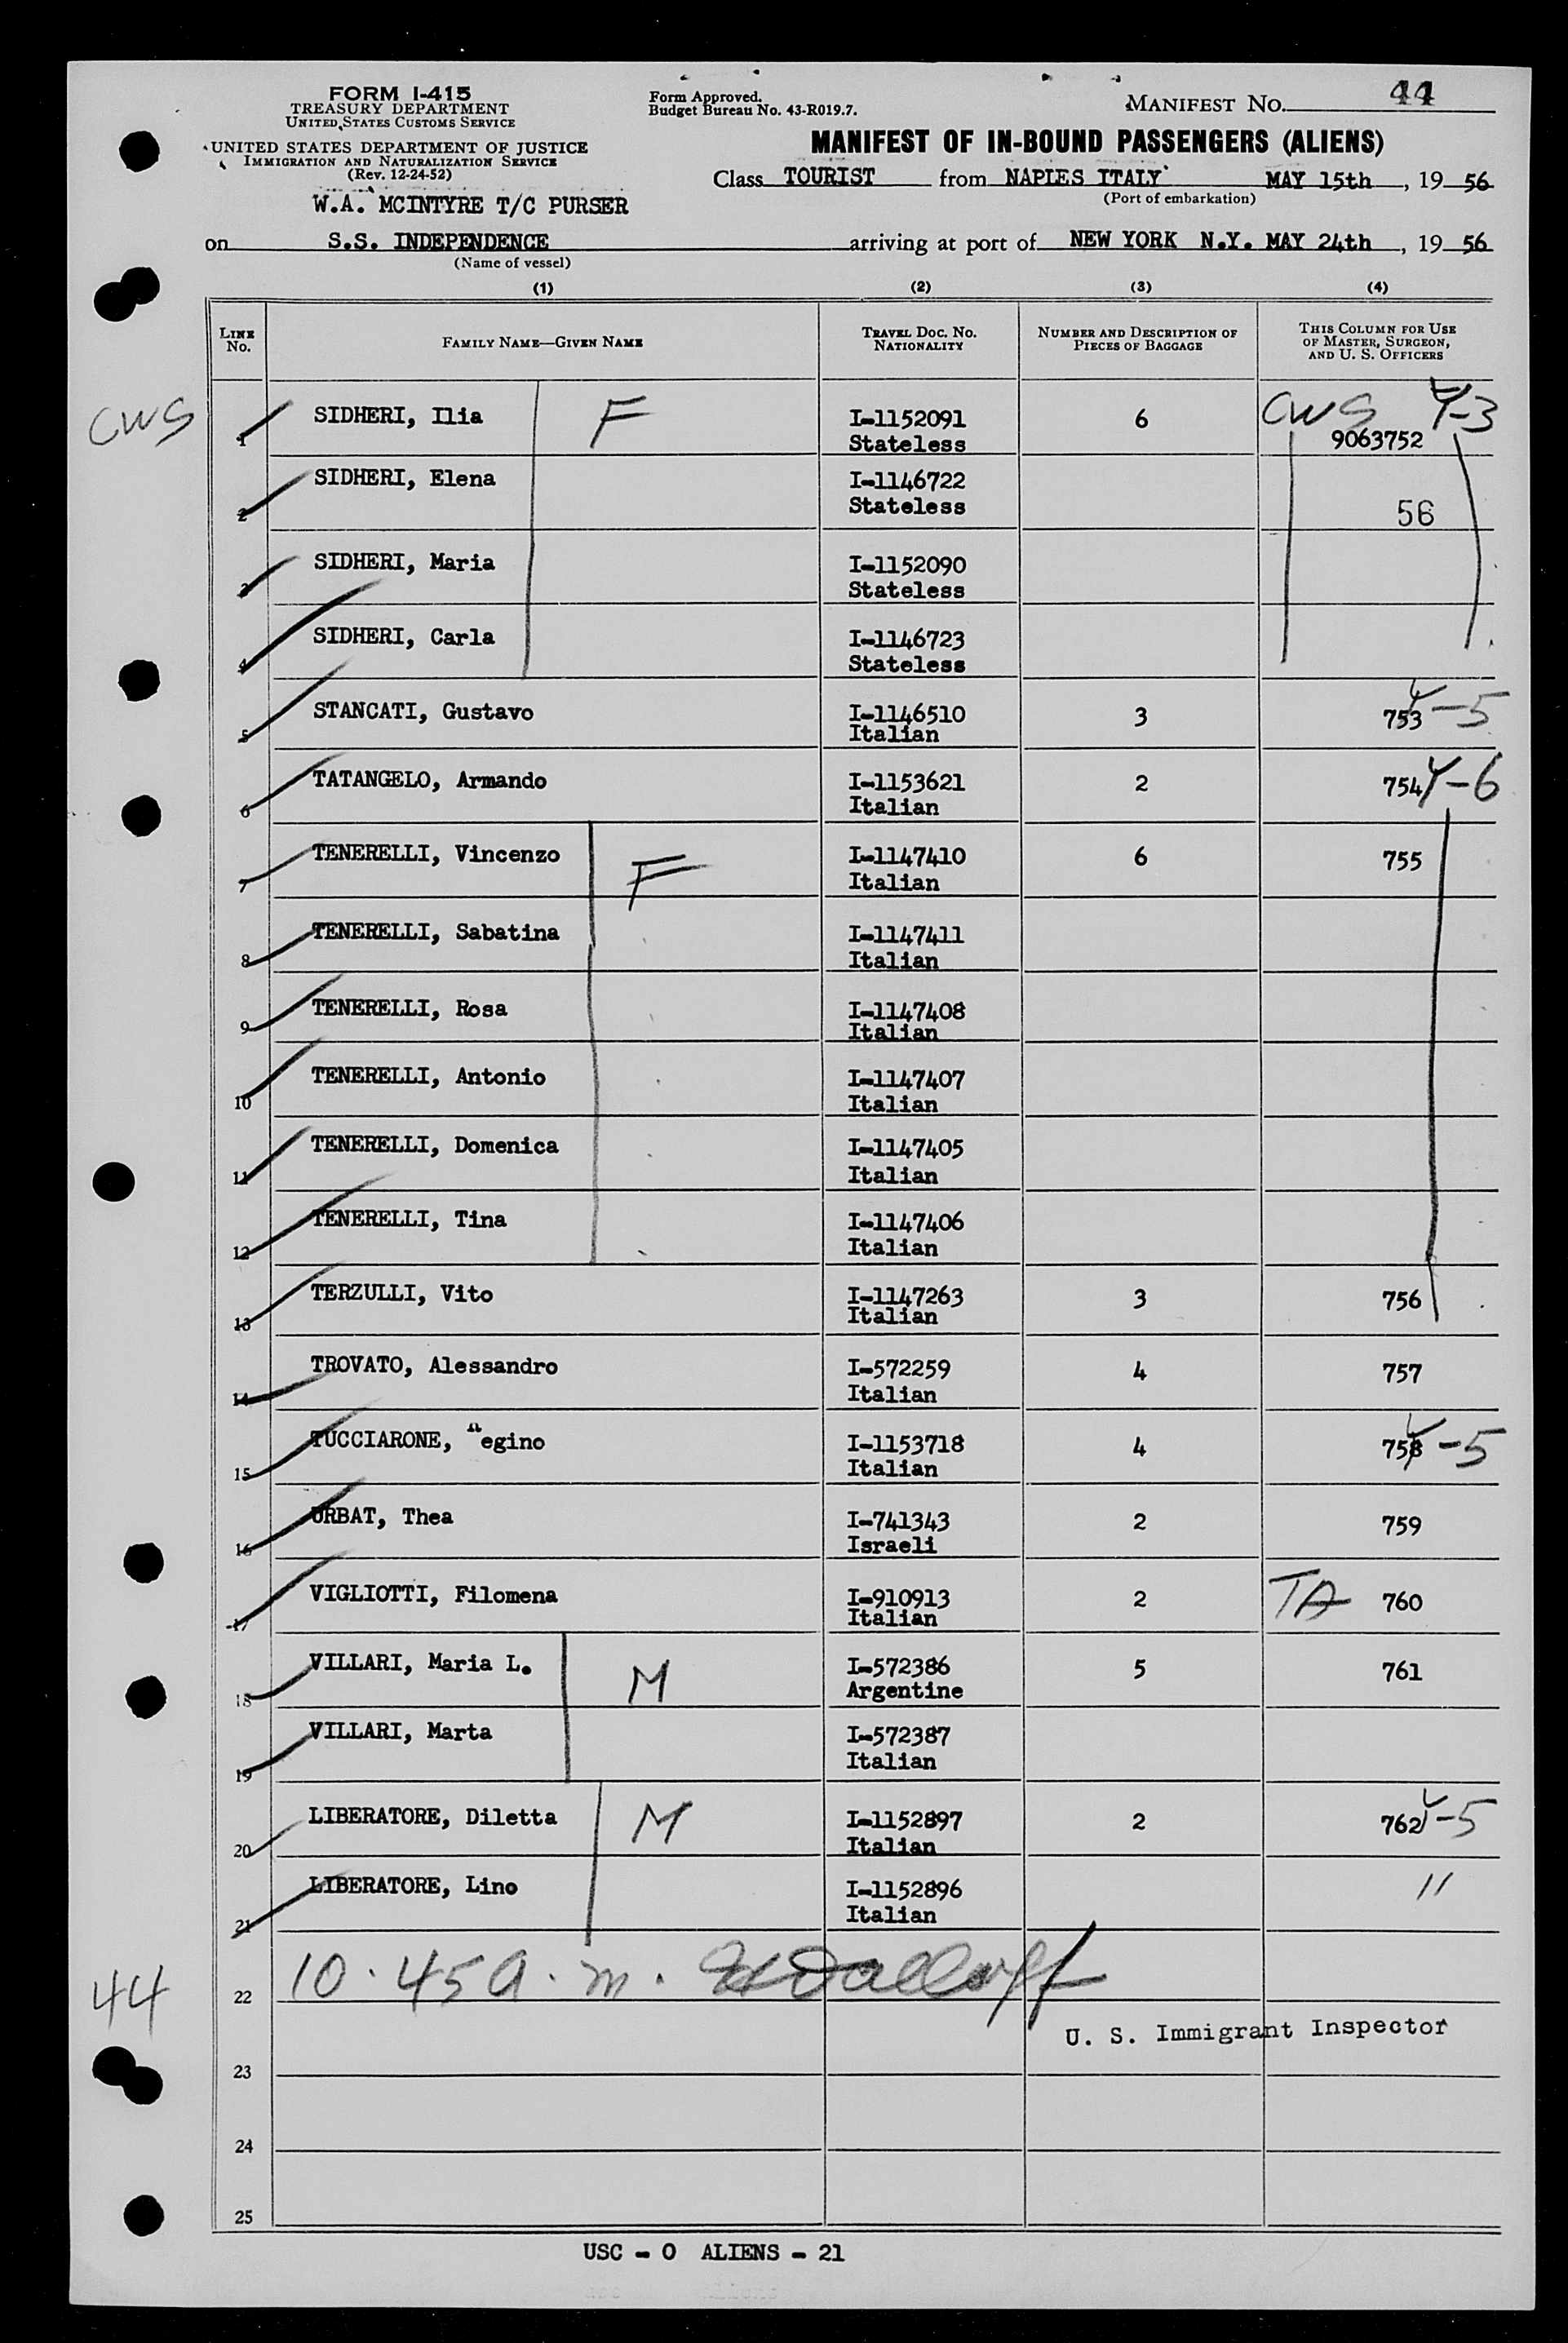 FORM I-415
TREASURY DEPARTMENT
UNITED STATES CUSTOMS SERVICE
UNITED STATES DEPARTMENT OF JUSTICE
IMMIGRATION AND NATURALIZATION SERVICE
(Rev. 12-24-52)
W.A. MCINTYRE T/C PURSER
Form Approved.
Budget Bureau No. 43-R019.7.
MANIFEST NO. 44
MANIFEST OF IN-BOUND PASSENGERS (ALIENS)
Class TOURIST from NAPLES ITALY MAY 15th, 19 56
(Port of embarkation)
on S.S. INDEPENDENCE arriving at port of NEW YORK N.Y. MAY 24th, 19 56
(Name of vessel)
(1) (2) (3) (4)
LINE No. FAMILY NAME—GIVEN NAME TRAVEL DOC. NO. NATIONALITY NUMBER AND DESCRIPTION OF PIECES OF BAGGAGE THIS COLUMN FOR USE OF MASTER, SURGEON, AND U. S. OFFICERS
CWS 1 SIDHERI, Ilia F I-1152091 Stateless 6 CWS 4-3 9063752
2 SIDHERI, Elena I-1146722 Stateless 56
3 SIDHERI, Maria I-1152090 Stateless
4 SIDHERI, Carla I-1146723 Stateless
5 STANCATI, Gustavo I-1146510 Italian 3 753 4-5
6 TATANGELO, Armando I-1153621 Italian 2 754 4-6
7 TENERELLI, Vincenzo F I-1147410 Italian 6 755
8 TENERELLI, Sabatina I-1147411 Italian
9 TENERELLI, Rosa I-1147408 Italian
10 TENERELLI, Antonio I-1147407 Italian
11 TENERELLI, Domenica I-1147405 Italian
12 TENERELLI, Tina I-1147406 Italian
13 TERZULLI, Vito I-1147263 Italian 3 756
14 TROVATO, Alessandro I-572259 Italian 4 757
15 TUCCIARONE, Regino I-1153718 Italian 4 758 4-5
16 URBAT, Thea I-741343 Israeli 2 759
17 VIGLIOTTI, Filomena I-910913 Italian 2 TA 760
18 VILLARI, Maria L. M I-572386 Argentine 5 761
19 VILLARI, Marta I-572387 Italian
20 LIBERATORE, Diletta M I-1152897 Italian 2 762 4-5
21 LIBERATORE, Lino I-1152896 Italian "
44 22 10.45 a.m.
U. S. Immigrant Inspector
23
24
25
USC - 0 ALIENS - 21